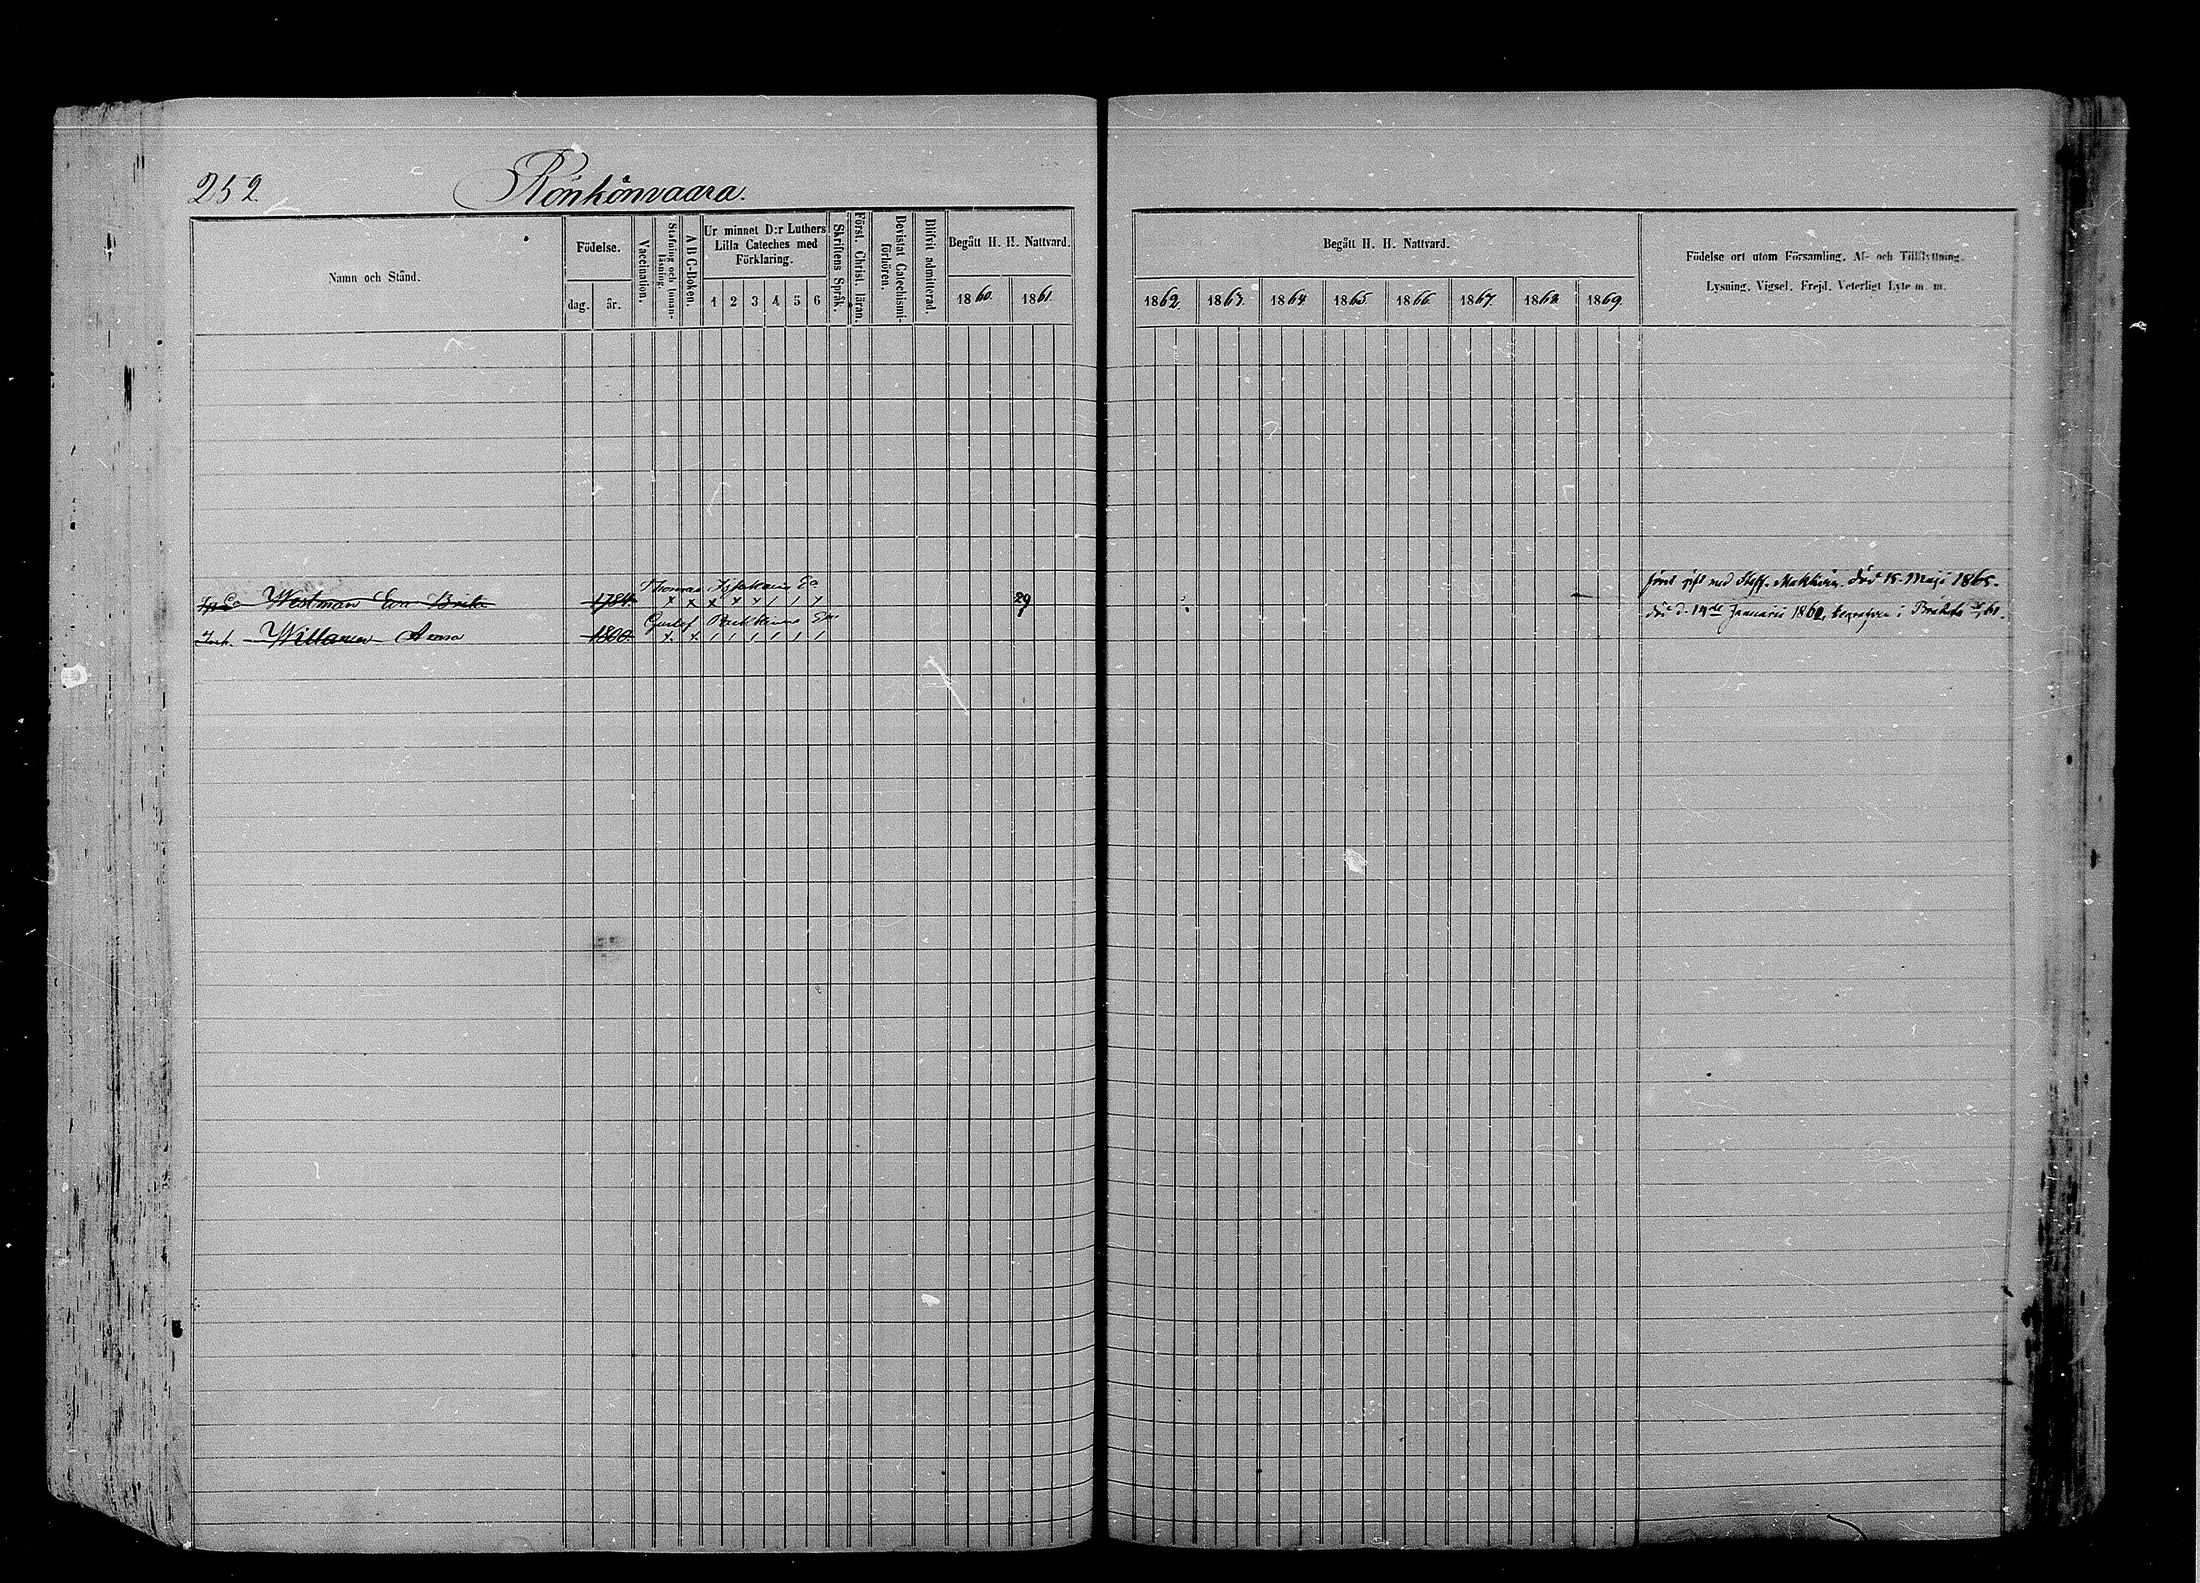 252.
Rönkönvaara.
Namn och Stånd.
Födelse.
dag.
år.
Vaccination.
Stafning och Innan-läsning.
A B C-Boken.
Ur minnet D:r Luthers
Lilla Cateches med
Förklaring.
1 2 3 4 5 6
Skriftens Språk.
Först. Christ. läran.
Bevistat Catechismi-förhören.
Blifvit admitterad.
Begått H. H. Nattvard.
1860. 1861.
Begått H. H. Nattvard.
1862. 1863. 1864 1865 1866 1867 1868 1869.
Födelse ort utom Församling. Af- och Tillflyttning.
Lysning. Vigsel. Frejd. Veterligt Lyte m. m.
Thomas Ea
Westman Eva Brita 1784 x x x x x / / x 29
9
först gift med Staff. död 15 Maji 1865.
Gustaf
Anna 1800. x x / / / / / /
död d. 14de Januarii 1861, begrafven i